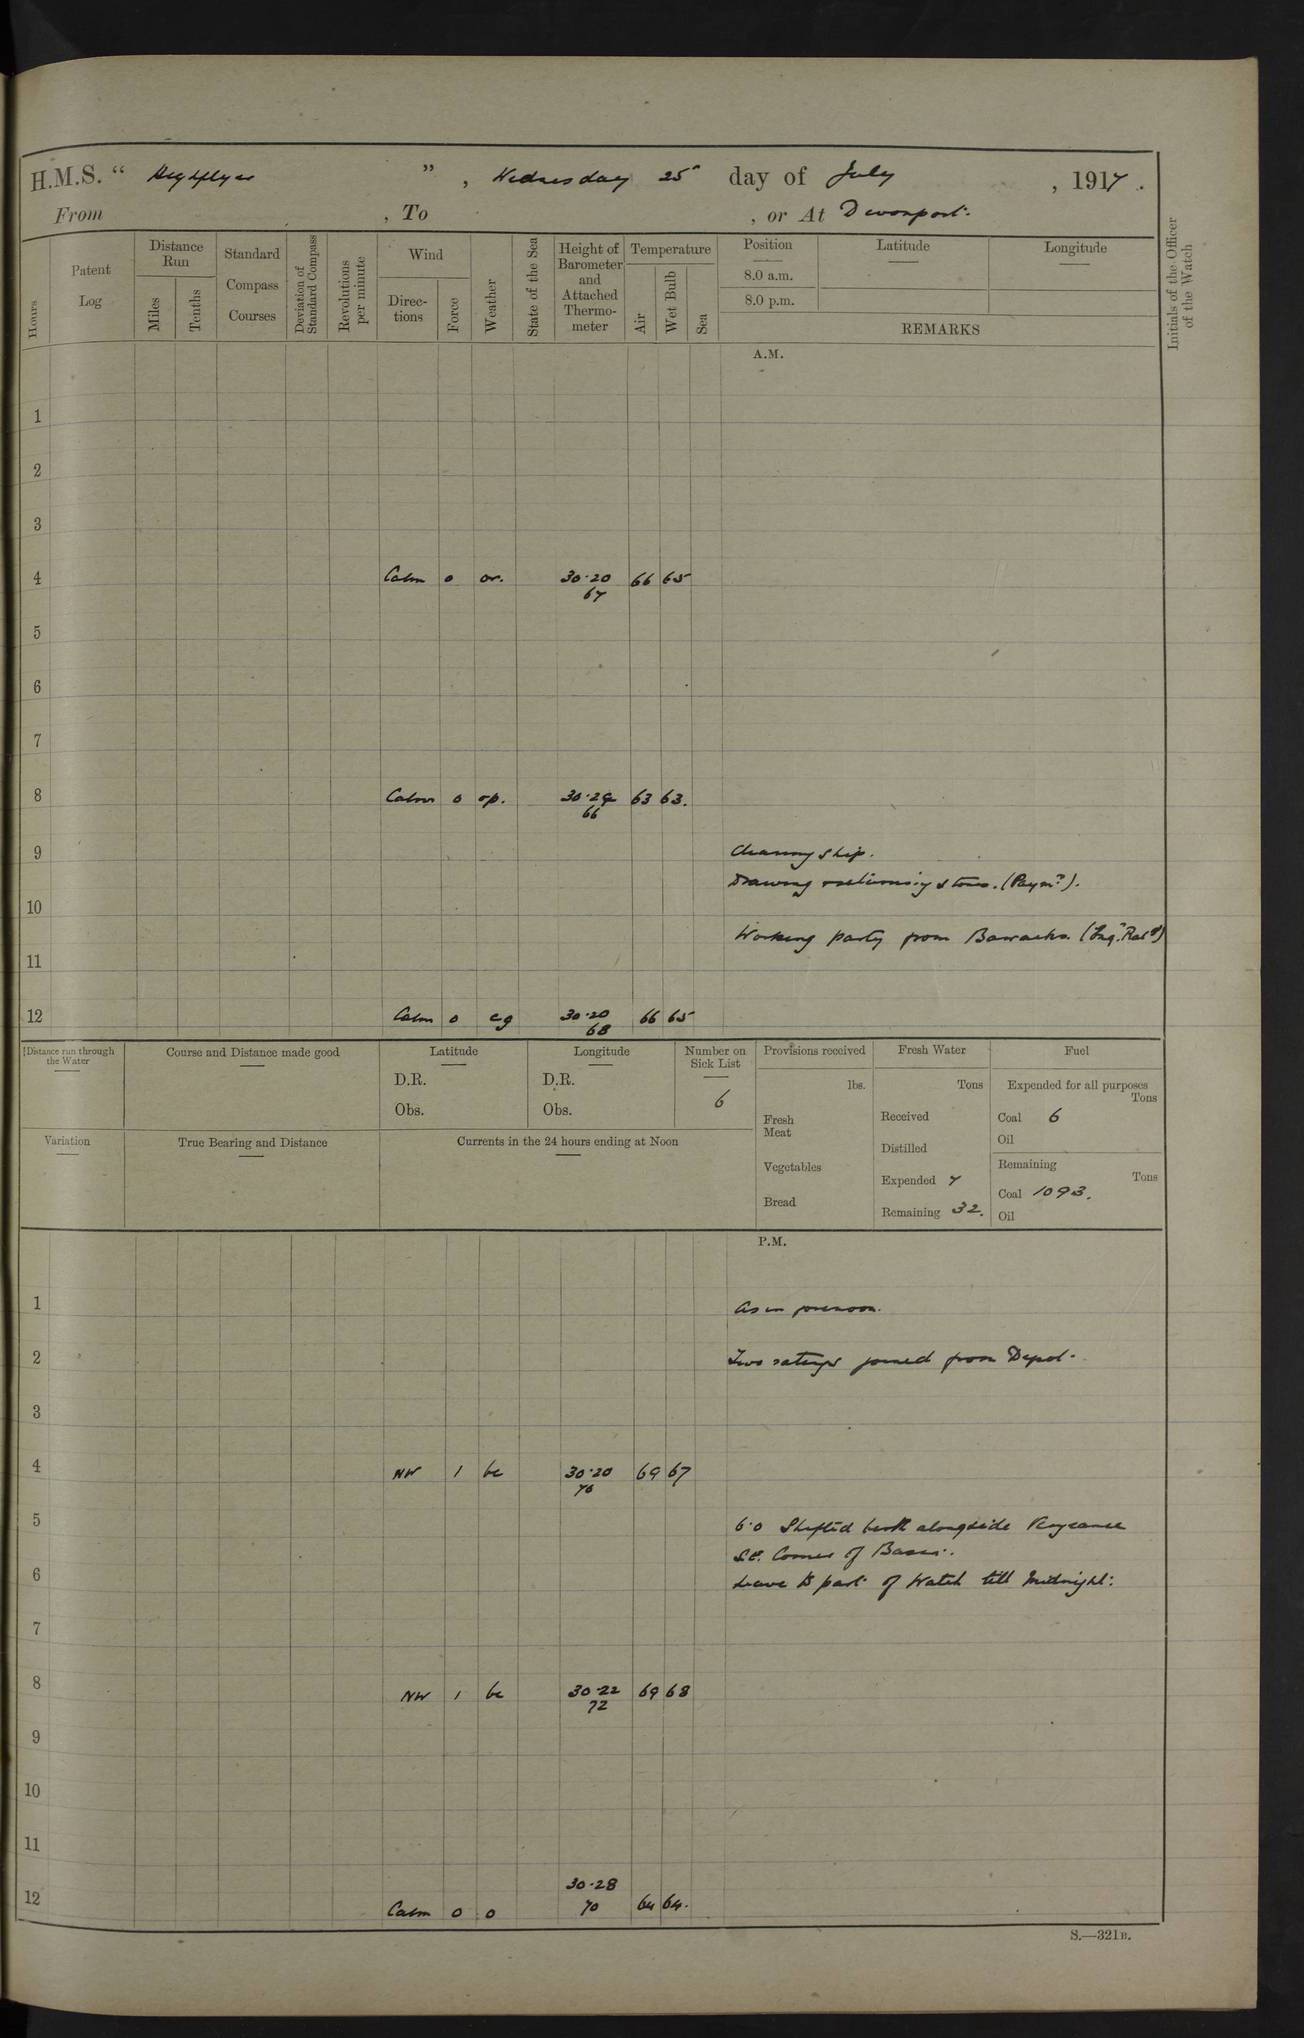 H.M.S. “ Highflyer ” , Wednesday 25 day of July , 1917.
From , To , or At Devonport.
Hours
Patent Log
Distance Run
Miles
Tenths
Standard Compass Courses
Deviation of Standard Compass
Revolutions per minute
Wind
Directions
Force
Weather
State of the Sea
Height of Barometer and Attached Thermometer
Temperature
Air
Wet Bulb
Sea
Position
8.0 a.m.
8.0 p.m.
Latitude
Longitude
REMARKS
Initials of the Officer of the Watch
A.M.
1
2
3
4 Calm 0 or. 30.20 66 65
67
5
6
7
8 Calm 0 op. 63 63.
66
9 Cleaning ship.
Drawing returning stores. (Paym.r).
10
Working party from Barracks.
11
12 Calm 0 cg 30.20 66 65
68
Distance run through the Water
Course and Distance made good
Latitude
D.R.
Obs.
Longitude
D.R.
Obs.
Number on Sick List
6
Variation
True Bearing and Distance
Currents in the 24 hours ending at Noon
Provisions received
lbs.
Fresh Meat
Vegetables
Bread
Fresh Water
Tons
Received
Distilled
Expended 7
Remaining 32.
Fuel
Expended for all purposes
Tons
Coal 6
Oil
Remaining
Tons
Coal 1093.
Oil
P.M.
1 As in forenoon.
2 Two ratings joined from Depot.
3
4 NW 1 bc 30.20 69 67
70
5 6.0 Shifted berth alongside Vengeance
S.E. Corner of Basin.
6 Leave to part of Watch till Midnight.
7
8 NW 1 bc 30.22 69 68
72
9
10
11
30.28
12 Calm 0 0 70 64 64.
S.—321B.